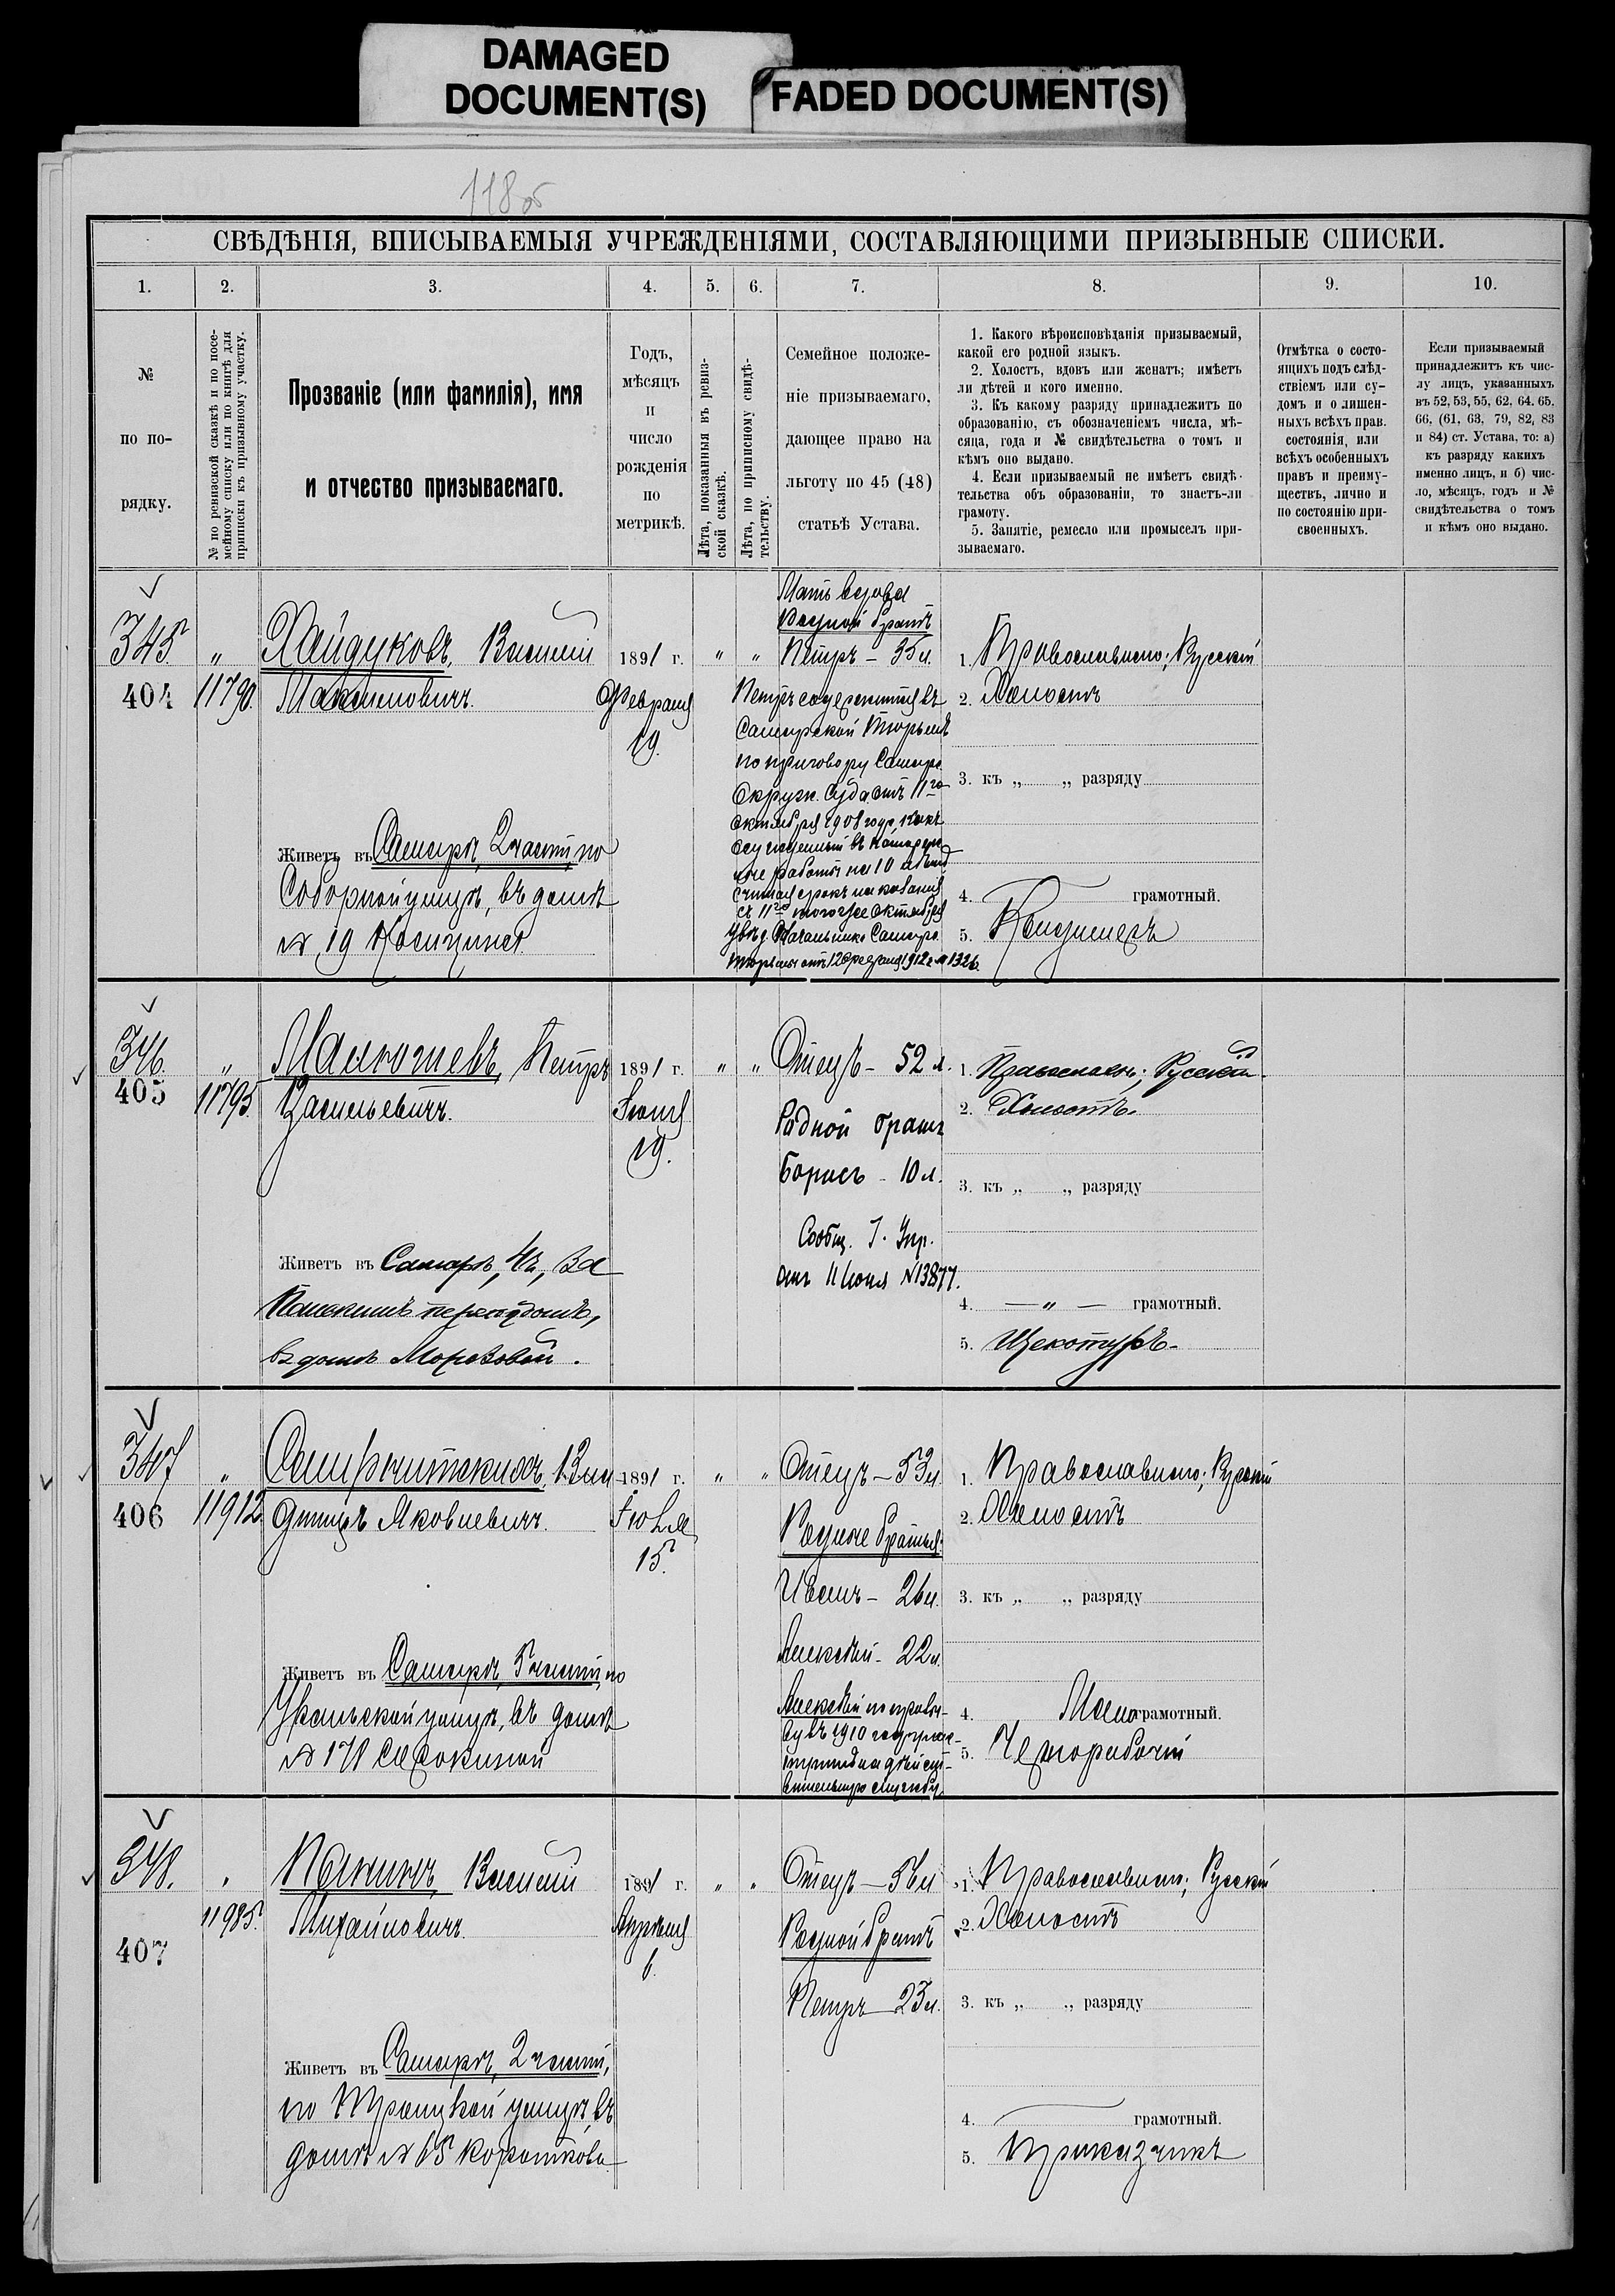 DAMAGED
DOCUMENT(S)
FADED DOCUMENT(S)
118об
СВѢДѢНІЯ, ВПИСЫВАЕМЫЯ УЧРЕЖДЕНІЯМИ, СОСТАВЛЯЮЩИМИ ПРИЗЫВНЫЕ СПИСКИ.
1. 2. 3. 4. 5. 6. 7. 8. 9. 10.
№
по по-
рядку.
№ по ревизской сказкѣ и по посе-
мейному списку или по книгѣ для
приписки къ призывному участку.
Прозваніе (или фамилія), имя
и отчество призываемаго.
Годъ,
мѣсяцъ
и
число
рожденія
по
метрикѣ.
Лѣта, показанныя въ ревиз-
ской сказкѣ.
Лѣта, по приписному свидѣ-
тельству.
Семейное положе-
ніе призываемаго,
дающее право на
льготу по 45 (48)
статьѣ Устава.
1. Какого вѣроисповѣданія призываемый,
какой его родной языкъ.
2. Холостъ, вдовъ или женатъ; имѣетъ
ли дѣтей и кого именно.
3. Къ какому разряду принадлежитъ по
образованію, съ обозначеніемъ числа, мѣ-
сяца, года и № свидѣтельства о томъ и
кѣмъ оно выдано.
4. Если призываемый не имѣетъ свидѣ-
тельства объ образованіи, то знаетъ-ли
грамоту.
5. Занятіе, ремесло или промыселъ при-
зываемаго.
Отмѣтка о состо-
ящихъ подъ слѣд-
ствіемъ или су-
домъ и о лишен-
ныхъ всѣхъ прав.
состоянія, или
всѣхъ особенныхъ
правъ и преиму-
ществъ, лично и
по состоянію при-
своенныхъ.
Если призываемый
принадлежитъ къ чис-
лу лицъ, указанныхъ
въ 52, 53, 55, 62, 64. 65.
66. (61, 63, 79, 82, 83
и 84) ст. Устава, то: а)
къ разряду какихъ
именно лицъ, и б) чис-
ло, мѣсяцъ, годъ и №
свидѣтельства о томъ
и кѣмъ оно выдано.
345.
404
„
11790.
Хайдуковъ, Василій
Максимовичъ.
Живетъ въ Самарѣ, 2 части, по
Соборной улицѣ, въ домѣ
№ 19 Косицина
1891 г.
Февраля
19.
„ „
Мать вдова
Родной братъ
Петръ – 35 л.
Петръ содержится въ
Самарской Тюрьмѣ
по приговору Самарс.
Окружн. Суда отъ 11го
Октября 1908 года, какъ
осужденный въ каторж-
ные работы на 10 лѣтъ
считая срокъ наказанія
съ 11го того же Октября
Увѣд. Начальника Самарс.
тюрьмы отъ 12 Февраля 1912 г. № 1326.
1. Православнаго; Русскій
2. Холостъ
3. къ „ „ разряду
4. грамотный.
5. Кондитеръ
346.
405
„
11795.
Малютевъ, Петръ
Васильевичъ.
Живетъ въ Самарѣ, 4ч., за
переѣздомъ,
въ домѣ Морозовой.
1891 г.
Іюня
19.
„ „
Отецъ – 52 л.
Родной братъ
Борисъ – 10 л.
Сообщ. Г. Упр.
отъ 11 Іюня №13877.
1. Православн.; Русскій.
2. Холостъ.
3. къ „ „ разряду
4. — „ — грамотный.
5. Щекотуръ.
347
406
„
11912
Вик-
Яковлевичъ.
Живетъ въ Самарѣ, 5 части, по
Уральской улицѣ, въ домѣ
№ 171 Сидокиной
1891 г.
Іюля
15.
„ „
Отецъ – 53 л.
Родные братья:
Иванъ – 26 л.
Алексѣй – 22 л.
Алексѣй по призы-
ву въ 1910 году
принятъ на дѣйст-
вительную службу.
1. Православнаго; Русскій
2. Холостъ
3. къ „ „ разряду
4. Мало грамотный.
5. Чернорабочій
348.
407
„
11985.
Панинъ, Василій
Михайловичъ.
Живетъ въ Самарѣ, 2 части,
по Троицкой улицѣ, въ
домѣ № 65 Короткова
1891 г.
Апрѣля
6.
„ „
Отецъ – 56 л
Родной братъ
Петръ – 23 л.
1. Православнаго; Русскій
2. Холостъ
3. къ „ „ разряду
4. грамотный.
5. Приказчикъ